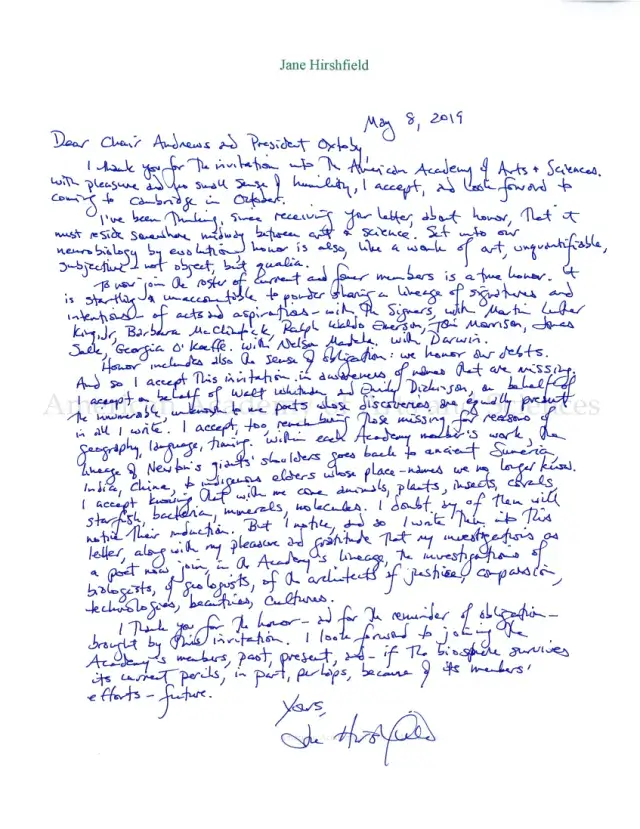 Jane Hirshfield
May 8, 2019
Dear Chair Andrews and President Oxtoby,
I thank you for the invitation into the American Academy of Arts + Sciences.
With pleasure and no small sense of humility, I accept, and look forward to
coming to Cambridge in October.
I've been thinking, since receiving your letter, about honor, that it
must reside somewhere midway between art & science. Set into our
neurobiology by evolution, honor is also, like a work of art, unquantifiable,
subjective – not object, but qualia.
To now join the roster of current and former members is a true honor. It
is startling & unaccountable to ponder sharing a lineage of signatures and
intentions – of acts and aspirations – with the Signers, with Martin Luther
King, Jr, Barbara McClintock, Ralph Waldo Emerson, Toni Morrison, Jonas
Salk, Georgia O'Keeffe. With Nelson Mandela. With Darwin.
Honor includes also the sense of obligation: we honor our debts.
And so I accept this invitation in awareness of names that are missing.
I accept on behalf of Walt Whitman and Emily Dickinson, on behalf of
the innumerable, unknown to me poets whose discoveries are equally present
in all I write. I accept, too, remembering those missing for reasons of
geography, language, timing. Within each Academy member's work, the
lineage of Newton's giants' shoulders goes back to ancient Sumeria,
India, China, to indigenous elders whose place-names we no longer know.
I accept knowing that with me come animals, plants, insects, corals,
starfish, bacteria, minerals, molecules. I doubt any of them will
notice their induction. But I notice, and so I write them into this
letter, along with my pleasure and gratitude that my investigations as
a poet now join, in the Academy's lineage, the investigations of
biologists, of geologists, of the architects of justice, compassion,
technologies, beauties, cultures.
I thank you for the honor – and for the reminder of obligation –
brought by this invitation. I look forward to joining the
Academy's members, past, present, and – if the biosphere survives
its current perils, in part, perhaps, because of its members'
efforts – future.
Yours,
Jane Hirshfield